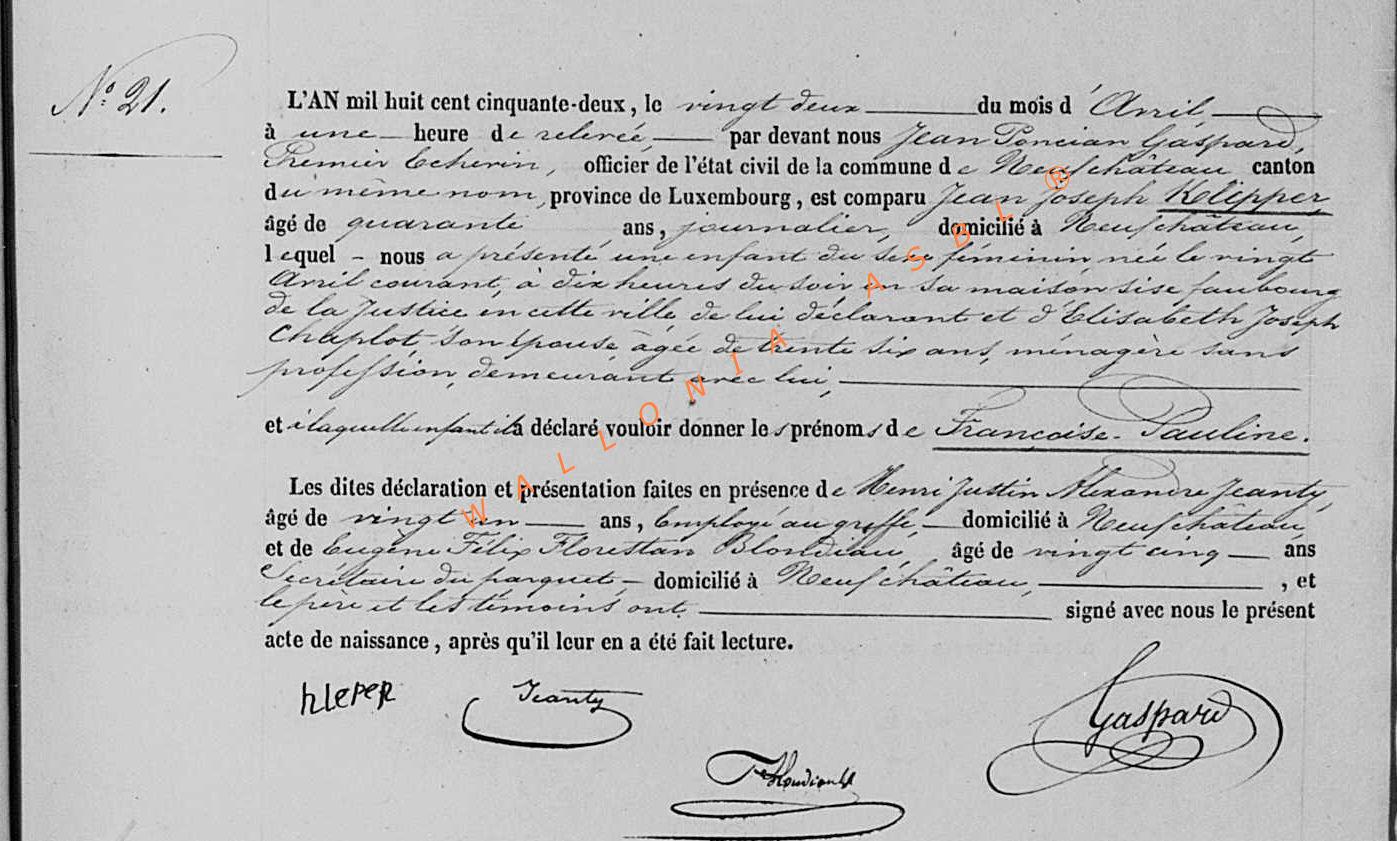 N.° 21.
L'AN mil huit cent cinquante-deux, le vingt deux du mois d'Avril
à une heure de relevée, par devant nous Jean Poncian Gaspard,
Premier Echevin, officier de l'état civil de la commune de Neufchâteau canton
du même nom, province de Luxembourg, est comparu Jean Joseph Klepper,
âgé de quarante ans, journalier, domicilié à Neufchâteau,
lequel - nous a présenté une enfant du sexe féminin née le vingt
Avril courant, à dix heures du soir en sa maison sise faubourg
de la Justice en cette ville de lui déclarant et d'Elisabeth Joseph
Chaplot son épouse, âgée de trente six ans, ménagère sans
profession, demeurant avec lui,
et à laquelle enfant il a déclaré vouloir donner les prénoms de Françoise-Pauline.
Les dites déclaration et présentation faites en présence de Henri Justin Alexandre Jeanty,
âgé de vingt un ans, Employé au greffe, domicilié à Neufchâteau,
et de Eugène Félix Florestan Blondiau, âgé de vingt cinq ans
Secrétaire du parquet, domicilié à Neufchâteau, , et
le père et les témoins ont signé avec nous le présent
acte de naissance, après qu'il leur en a été fait lecture.
KLEPER Jeanty Gaspard
WALLONIA ASBL®